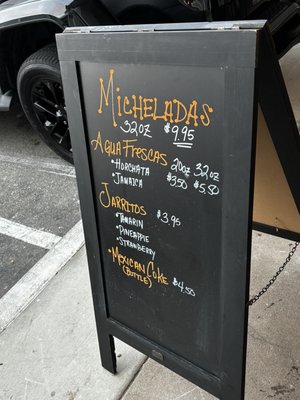 Micheladas
32oz $9.95
Agua Frescas 20oz 32oz
• Horchata $3.50 $5.50
• Jamaica
Jarritos $3.95
• Tamarin
• Pineapple
• Strawberry
• Mexican Coke $4.50
(Bottle)